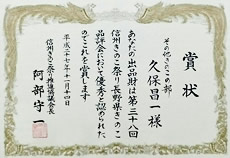 賞状
その他きのこの部
久保昌一様
あなたの出品財は第三十八回
信州きのこ祭り長野県きのこ
品評会において優秀と認められた
のでこれを賞します
平成二十七年十一月十四日
信州きのこ祭り推進協議会長
阿部守一